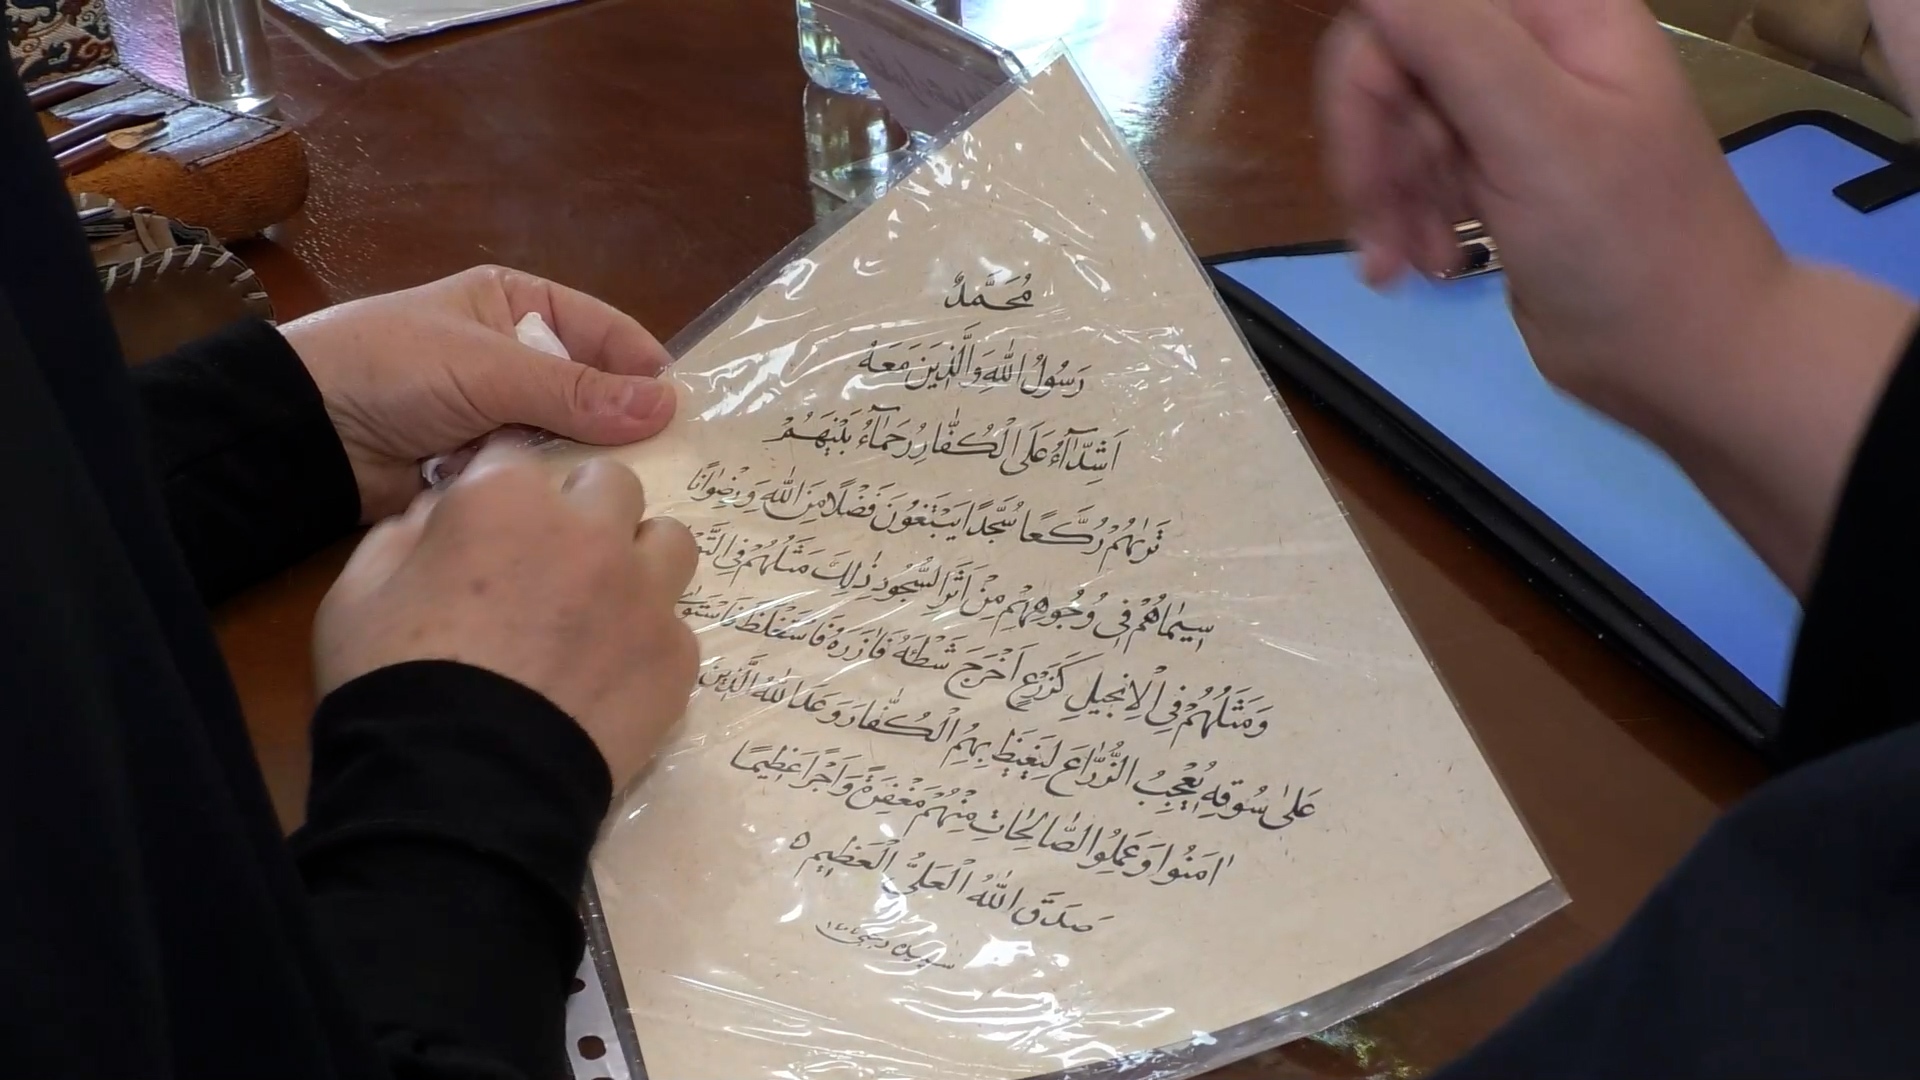 مُحَمَّدٌ
رَسُولُ اللّٰهِ وَالَّذِينَ مَعَهُ
اَشِدَّآءُ عَلَى الْكُفَّارِ رُحَمَآءُ بَيْنَهُمْ
تَرٰيهُمْ رُكَّعًا سُجَّدًا يَبْتَغُونَ فَضْلًا مِنَ اللّٰهِ وَرِضْوَانًا
سِيمَاهُمْ فِى وُجُوهِهِمْ مِنْ اَثَرِ السُّجُودِ ذٰلِكَ مَثَلُهُمْ فِى
وَمَثَلُهُمْ فِى الْاِنْجِيلِ كَزَرْعٍ اَخْرَجَ شَطْئَهُ فَاٰزَرَهُ فَاسْتَغْلَظَ
عَلٰى سُوقِهِ يُعْجِبُ الزُّرَّاعَ لِيَغِيظَ بِهِمُ الْكُفَّارَ وَعَدَ اللّٰهُ الَّذِينَ
اٰمَنُوا وَعَمِلُوا الصَّالِحَاتِ مِنْهُمْ مَغْفِرَةً وَاَجْرًا عَظِيمًا
صَدَقَ اللّٰهُ الْعَلِىُّ الْعَظِيمُ